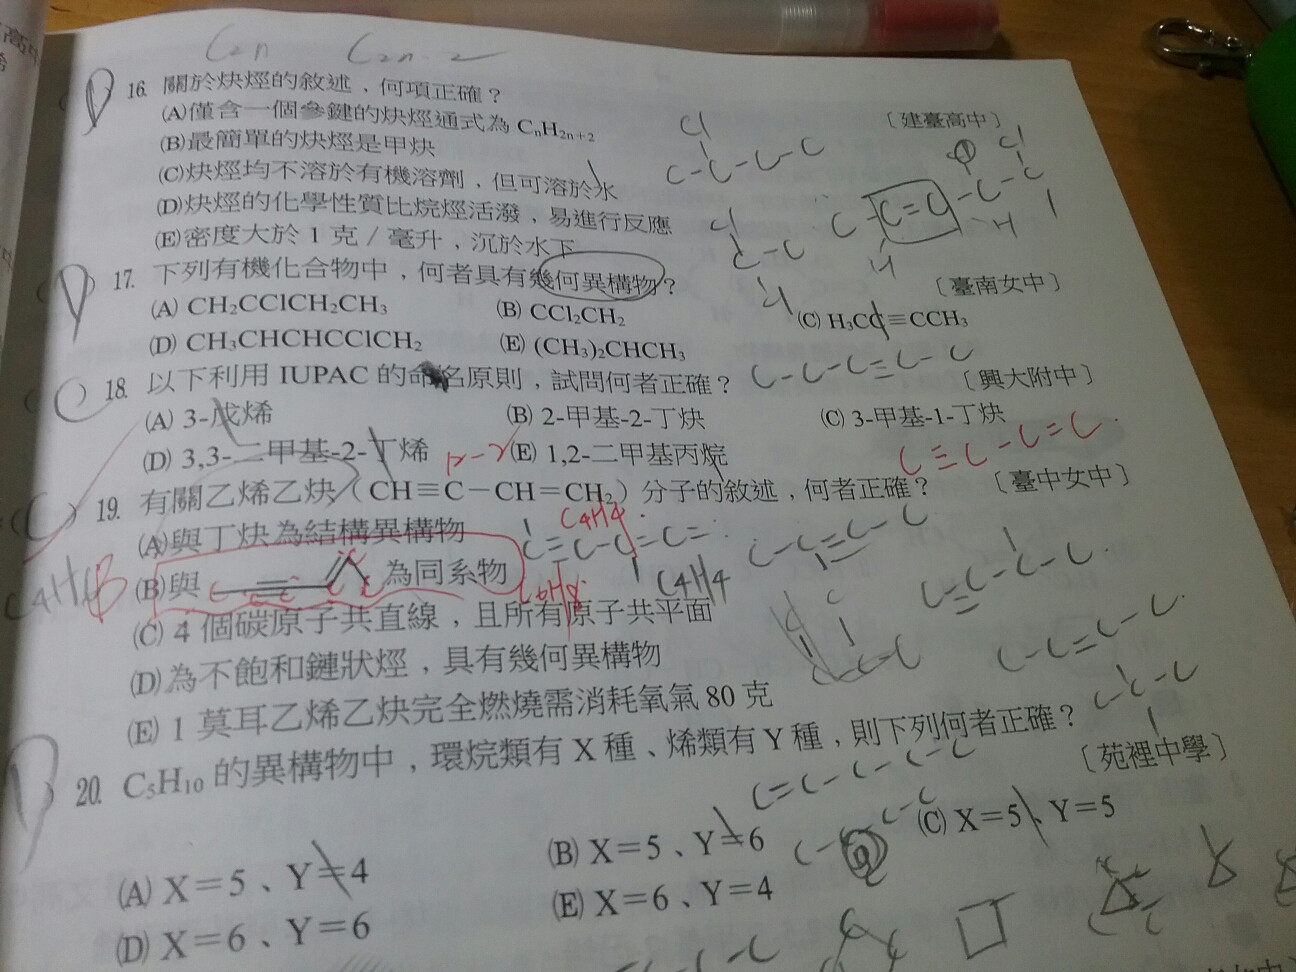 C2n C2n-2
D 16. 關於炔烴的敘述，何項正確？
〔建臺高中〕
(A)僅含一個參鍵的炔烴通式為 CnH2n+2
(B)最簡單的炔烴是甲炔
(C)炔烴均不溶於有機溶劑，但可溶於水
(D)炔烴的化學性質比烷烴活潑，易進行反應
(E)密度大於 1 克／毫升，沉於水下
D 17. 下列有機化合物中，何者具有幾何異構物？
〔臺南女中〕
(A) CH2CClCH2CH3 (B) CCl2CH2 (C) H3CC≡CCH3
(D) CH3CHCHCClCH2 (E) (CH3)2CHCH3
C 18. 以下利用 IUPAC 的命名原則，試問何者正確？
〔興大附中〕
(A) 3-戊烯 (B) 2-甲基-2-丁炔 (C) 3-甲基-1-丁炔
(D) 3,3-二甲基-2-丁烯 (E) 1,2-二甲基丙烷
C≡C-C=C
19. 有關乙烯乙炔（CH≡C－CH＝CH2）分子的敘述，何者正確？
〔臺中女中〕
(A)與丁炔為結構異構物
C4H4
(B)與 為同系物
C4H4
(C) 4 個碳原子共直線，且所有原子共平面
(D)為不飽和鏈狀烴，具有幾何異構物
(E) 1 莫耳乙烯乙炔完全燃燒需消耗氧氣 80 克
D 20. C5H10 的異構物中，環烷類有 X 種、烯類有 Y 種，則下列何者正確？
〔苑裡中學〕
(A) X＝5、Y＝4 (B) X＝5、Y＝6 (C) X＝5、Y＝5
(D) X＝6、Y＝6 (E) X＝6、Y＝4